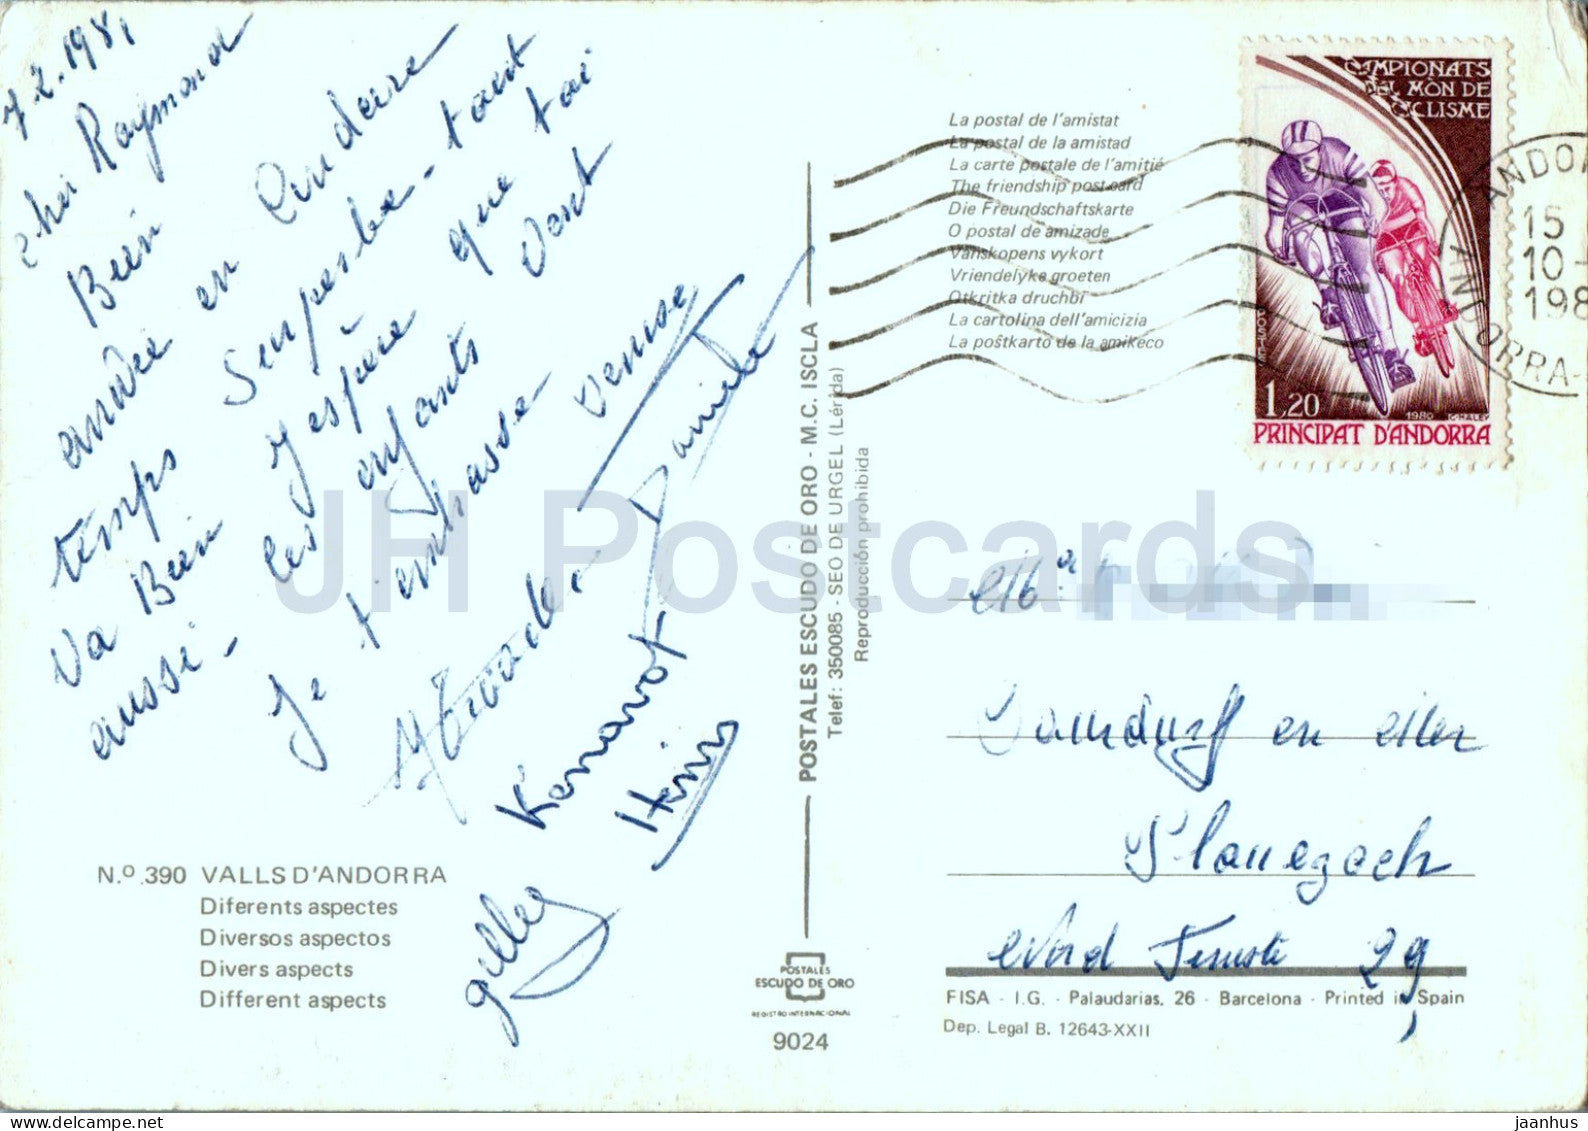 7.2.1981
cher Raymond
Bien
andré en Endaire
temps superbe - tant
va Bien j'espère que toi
aussi - les enfants vont
Je t'embrasse
Danita
Kenavot
Henri
gilley
N.º 390 VALLS D'ANDORRA
Diferents aspectes
Diversos aspectos
Divers aspects
Different aspects
POSTALES ESCUDO DE ORO - M.C. ISCLA
Telef: 350085 - SEO DE URGEL (Lérida)
Reproducción prohibida
POSTALES
ESCUDO DE ORO
REGISTRO INTERNACIONAL
9024
La postal de l'amistat
La postal de la amistad
La carte postale de l'amitié
The friendship postcard
Die Freundschaftskarte
O postal de amizade
Vanskopens vykort
Vriendelyke groeten
Otkritka druchbi
La cartolina dell'amicizia
La poŝtkarto de la amikeco
CAMPIONATS
DEL MÓN DE
CICLISME
1,20
1980 C.HALEY
PRINCIPAT D'ANDORRA
ANDOR
15
10-
198
ANDORRA-
en
Planezoch
Nord 29
FISA - I.G. - Palaudarias, 26 - Barcelona - Printed in Spain
Dep. Legal B. 12643-XXII
JH Postcards
jaanhus @ HipStamp.com